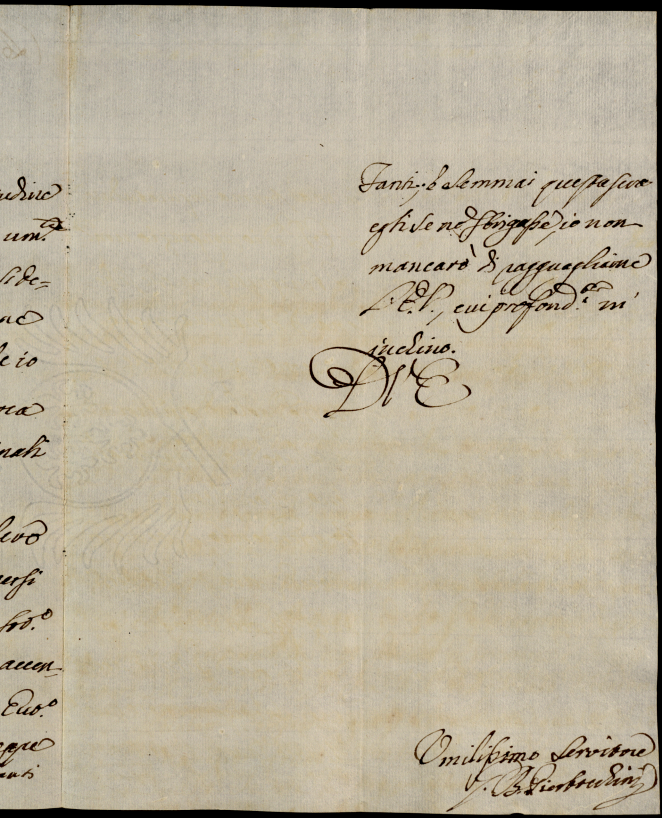 udine
um.te
se de=
ne
le io
nali
levo
versi
fro.o
accen-
Evo.o
eppe
anti
Fanti; e semmai questa sera
egli se ne sbrigasse, io non
mancarò di ragguagliarne
V. E., cui profond.te m'
inchino.
D V E
Umilissimo Servitore